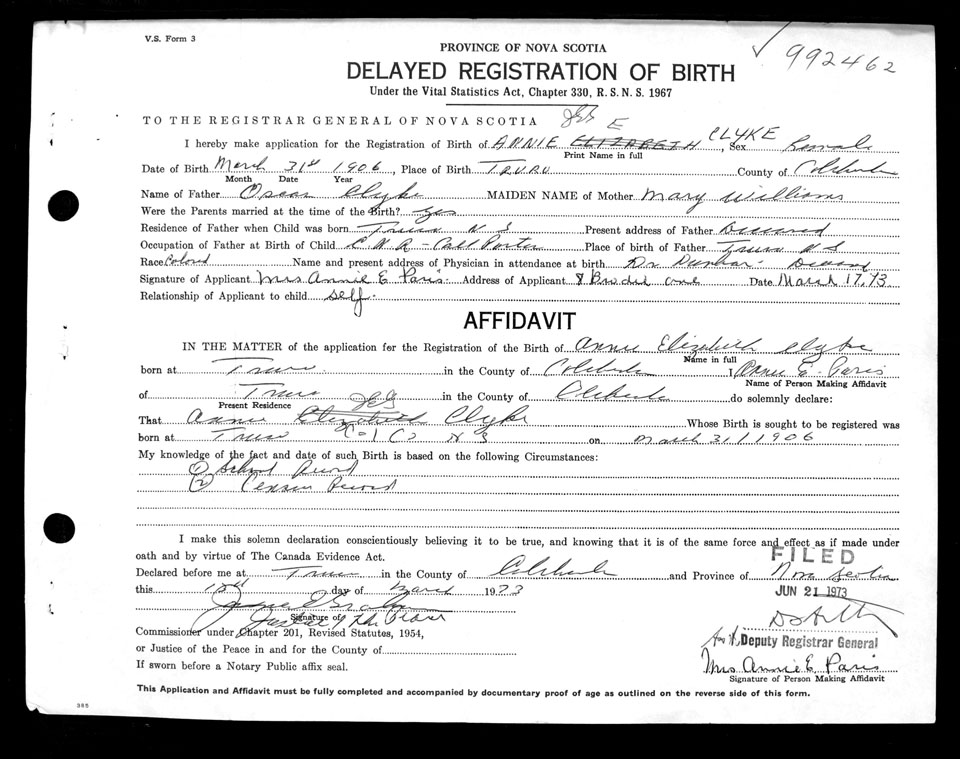 V.S. Form 3
992462
PROVINCE OF NOVA SCOTIA
DELAYED REGISTRATION OF BIRTH
Under the Vital Statistics Act, Chapter 330, R.S.N.S. 1967
TO THE REGISTRAR GENERAL OF NOVA SCOTIA
I hereby make application for the Registration of Birth of ANNIE E ELIZABETH CLYKE Sex Female
Print Name in full
Date of Birth March 31st 1906, Place of Birth TRURO County of Colchester
Month Date Year
Name of Father Oscar Clyke MAIDEN NAME of Mother Mary Williams
Were the Parents married at the time of the Birth? yes
Residence of Father when Child was born Truro N S Present address of Father Deceased
Occupation of Father at Birth of Child C.N.R - Porter Place of birth of Father Truro N S
Race Colored Name and present address of Physician in attendance at birth Dr Dunbar - Deceased
Signature of Applicant Mrs Annie E Paris Address of Applicant 8 Date March 17, 73
Relationship of Applicant to child self.
AFFIDAVIT
IN THE MATTER of the application for the Registration of the Birth of Annie Elizabeth Clyke
Name in full
born at Truro in the County of Colchester I Annie E. Paris
Name of Person Making Affidavit
of Truro in the County of Colchester do solemnly declare:
Present Residence
That Annie Elizabeth Clyke Whose Birth is sought to be registered was
born at Truro Col Co N S on March 31 / 1906
My knowledge of the fact and date of such Birth is based on the following Circumstances:
(1) School Record
(2) Census Record
I make this solemn declaration conscientiously believing it to be true, and knowing that it is of the same force and effect as if made under
oath and by virtue of The Canada Evidence Act.
FILED
Declared before me at Truro in the County of Colchester and Province of Nova Scotia
this day of March 1973
JUN 21 1973
Signature of
Justice of the Peace
Commissioner under Chapter 201, Revised Statutes, 1954,
Deputy Registrar General
or Justice of the Peace in and for the County of
Mrs Annie E Paris
If sworn before a Notary Public affix seal.
Signature of Person Making Affidavit
This Application and Affidavit must be fully completed and accompanied by documentary proof of age as outlined on the reverse side of this form.
385